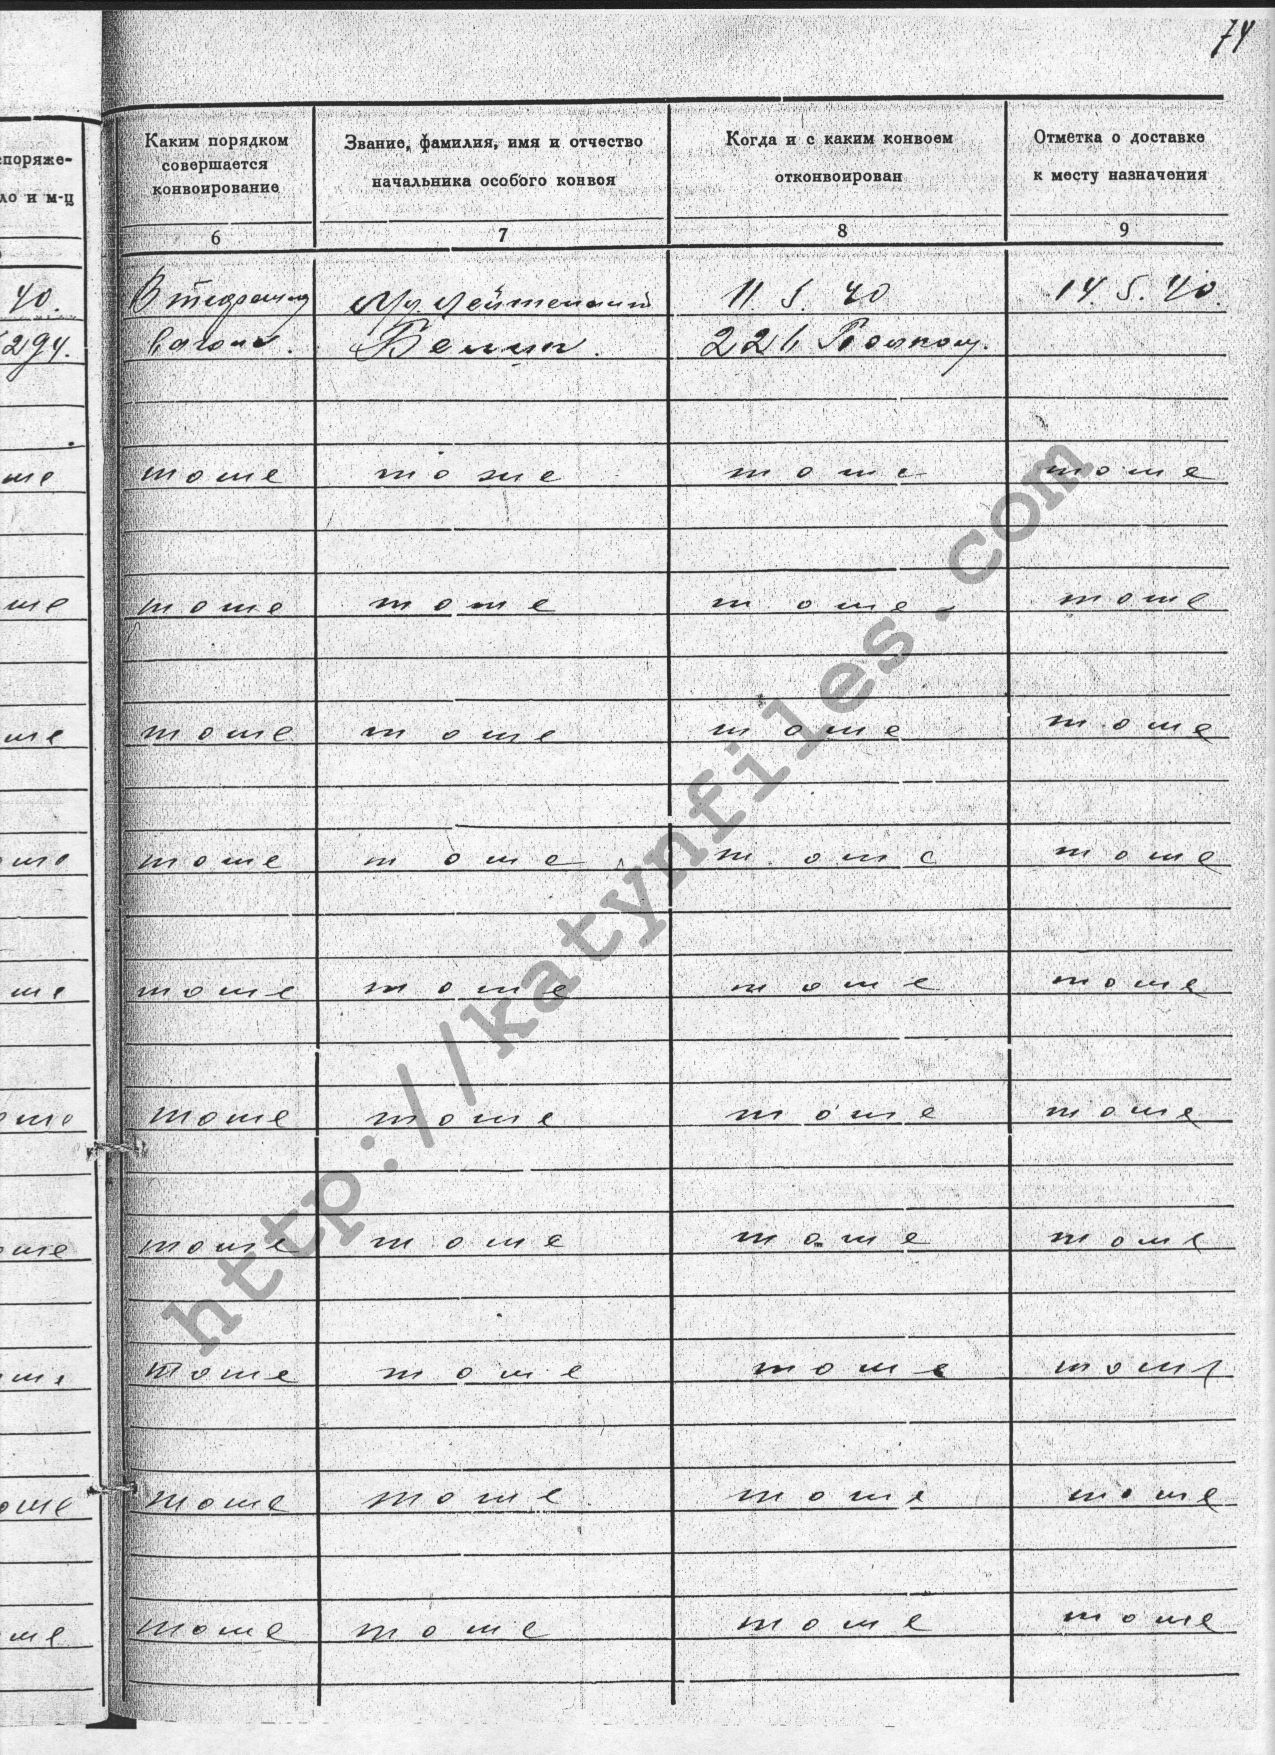 74
споряже-
ло и м-ц
Каким порядком
совершается
конвоирование
Звание, фамилия, имя и отчество
начальника особого конвоя
Когда и с каким конвоем
отконвоирован
Отметка о доставке
к месту назначения
6 7 8 9
40. В отдельном Мл. Лейтенант 11.5.40 14.5.40.
294. вагоне.
226
ше тоже тоже тоже тоже
ше тоже тоже тоже тоже
ше тоже тоже тоже тоже
оше тоже тоже тоже тоже
ше тоже тоже тоже тоже
оше тоже тоже тоже тоже
оше тоже тоже тоже тоже
оше тоже тоже тоже тоже
оше тоже тоже тоже тоже
ше тоже тоже тоже тоже
http://katynfiles.com